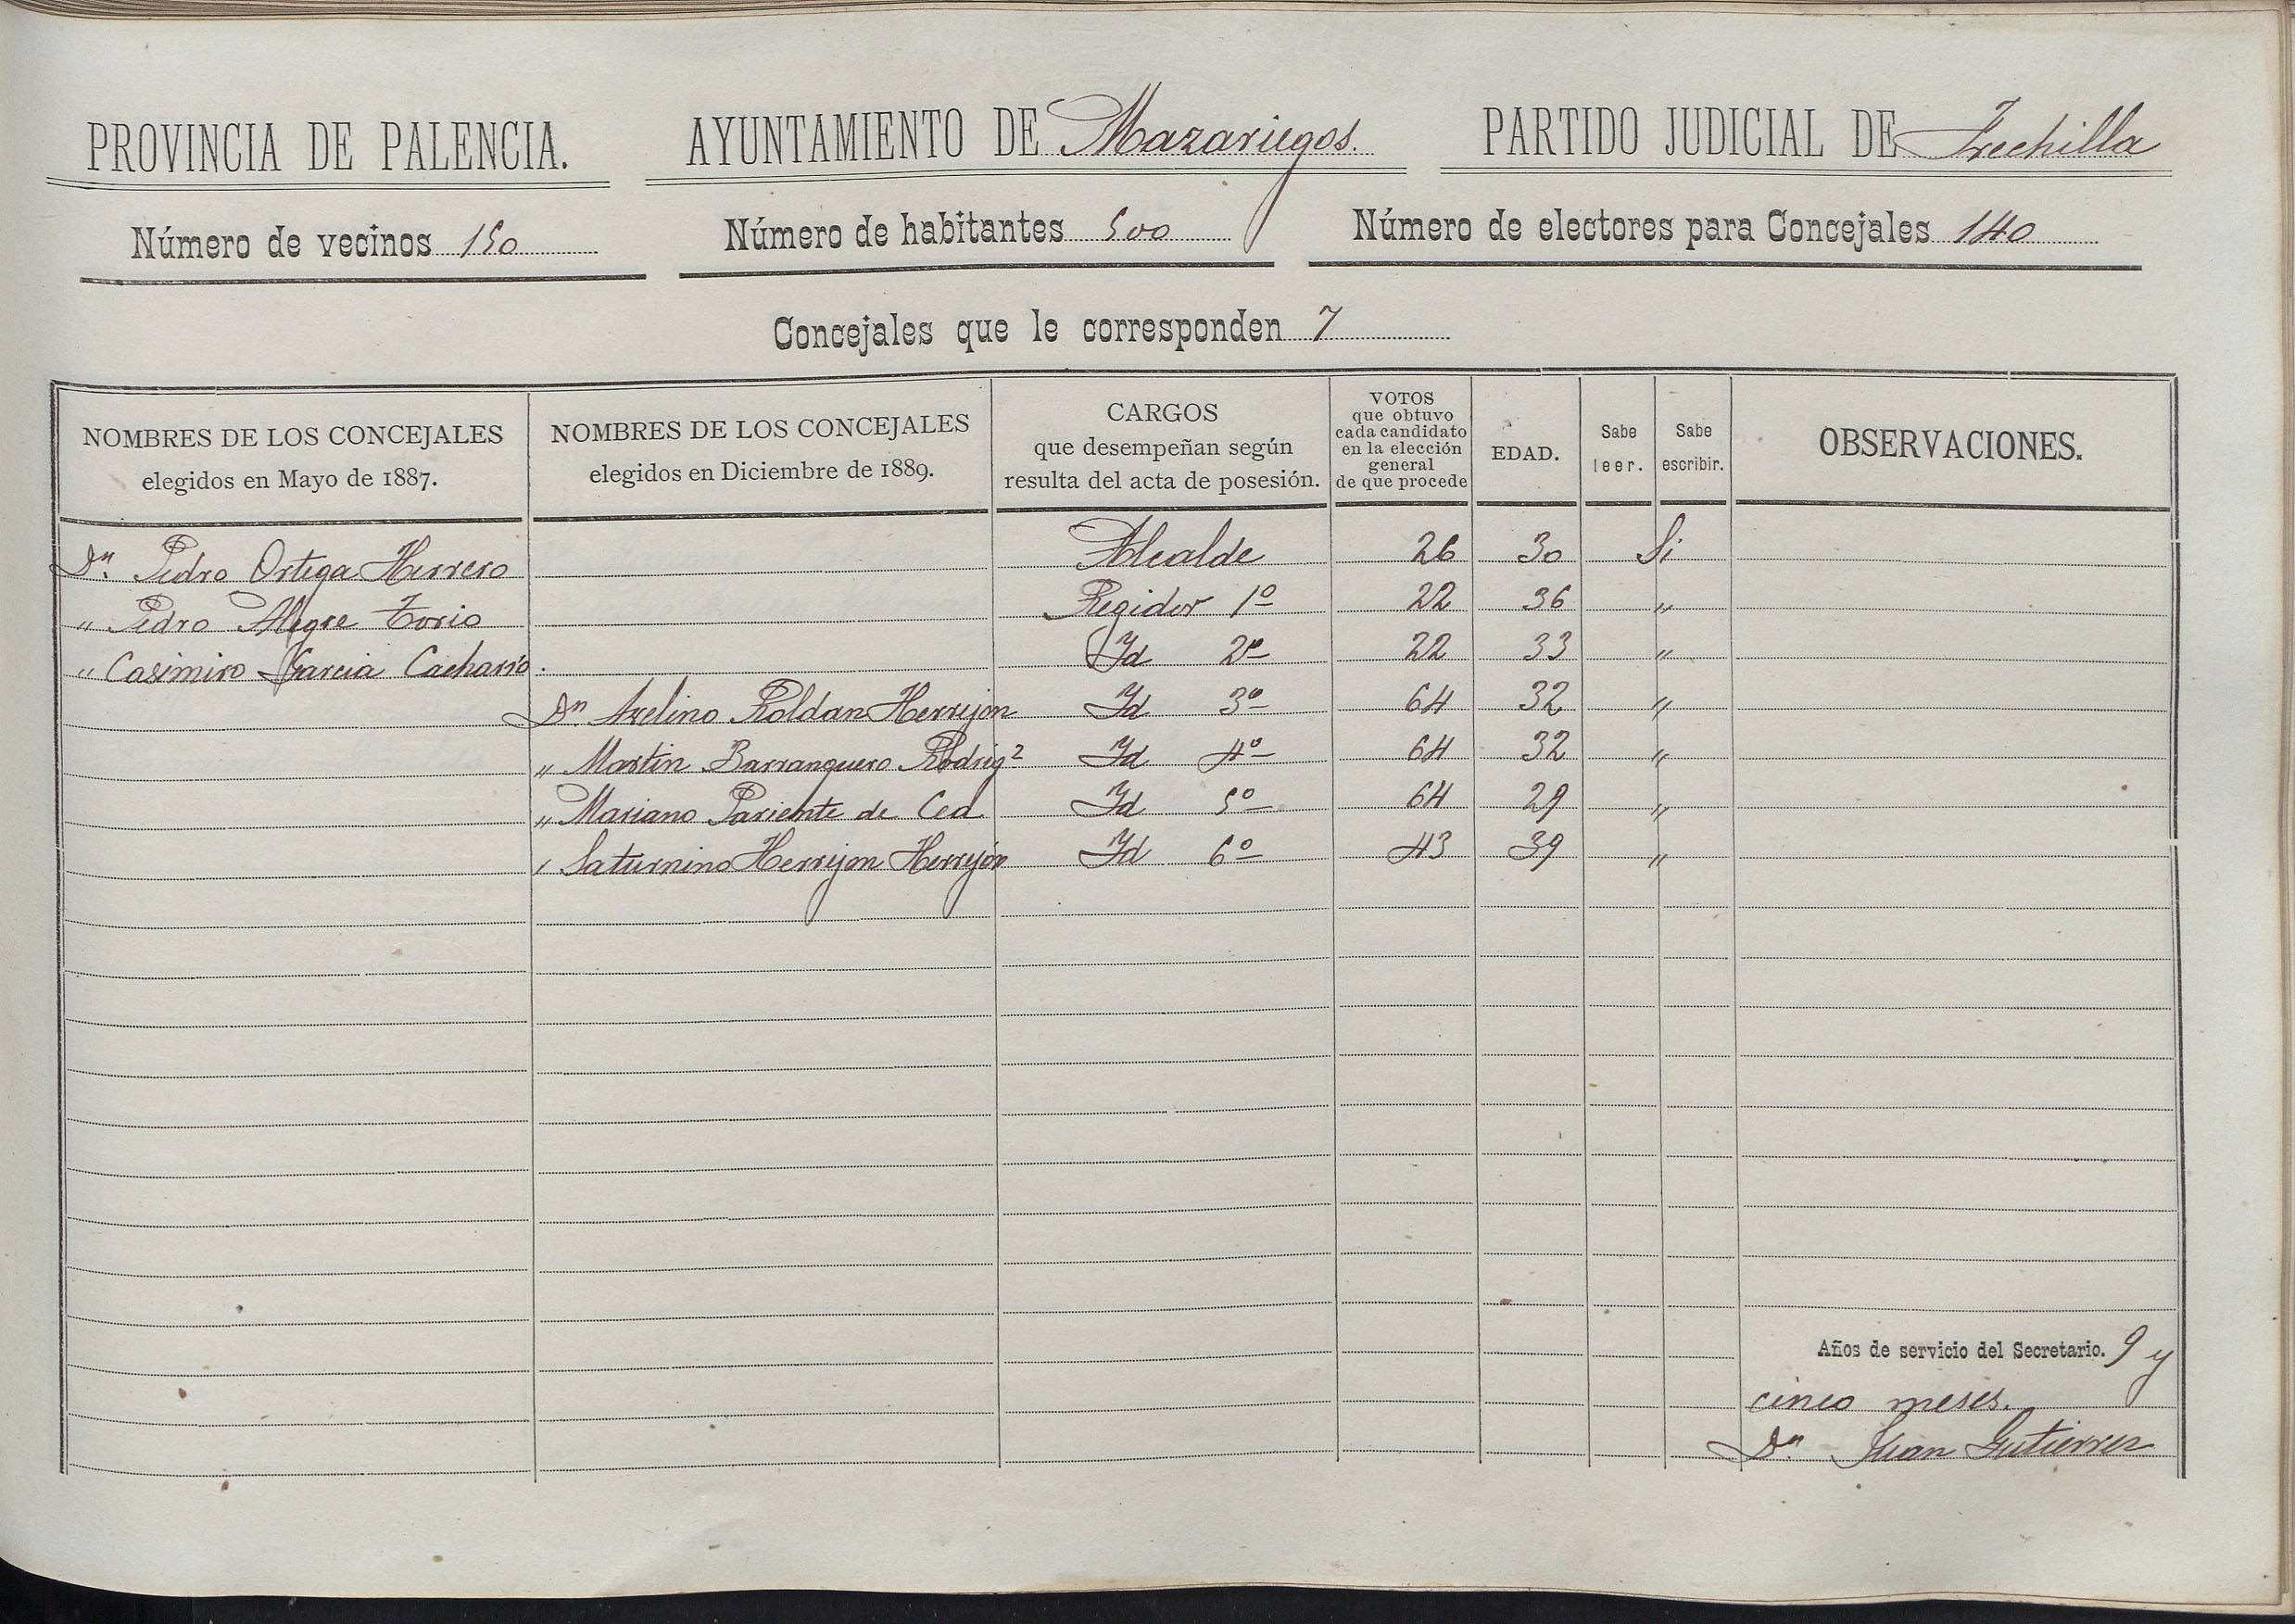 PROVINCIA DE PALENCIA. AYUNTAMIENTO DE Mazariegos. PARTIDO JUDICIAL DE Frechilla
Número de vecinos 150 Número de habitantes 500 Número de electores para Concejales 140
Concejales que le corresponden 7
NOMBRES DE LOS CONCEJALES
elegidos en Mayo de 1887.
NOMBRES DE LOS CONCEJALES
elegidos en Diciembre de 1889.
CARGOS
que desempeñan según
resulta del acta de posesión.
VOTOS
que obtuvo
cada candidato
en la elección
general
de que procede
EDAD.
Sabe
leer.
Sabe
escribir.
OBSERVACIONES.
Dn. Pedro Ortega Herrero Alcalde 26 30 Si
" Pedro Alegre Torio Regidor 1º 22 36 "
" Casimiro Garcia Cacharro. Id 2º 22 33 "
Dn. Avelino Roldan Herrejon Id 3º 64 32 "
" Martin Barranquero Rodrigz Id 4º 64 32 "
" Mariano Pariente de Cea Id 5º 64 29 "
" Saturnino Herrejon Herrejon Id 6º 43 39 "
Años de servicio del Secretario. 9 y
cinco meses.
Dn. Juan Gutierrez